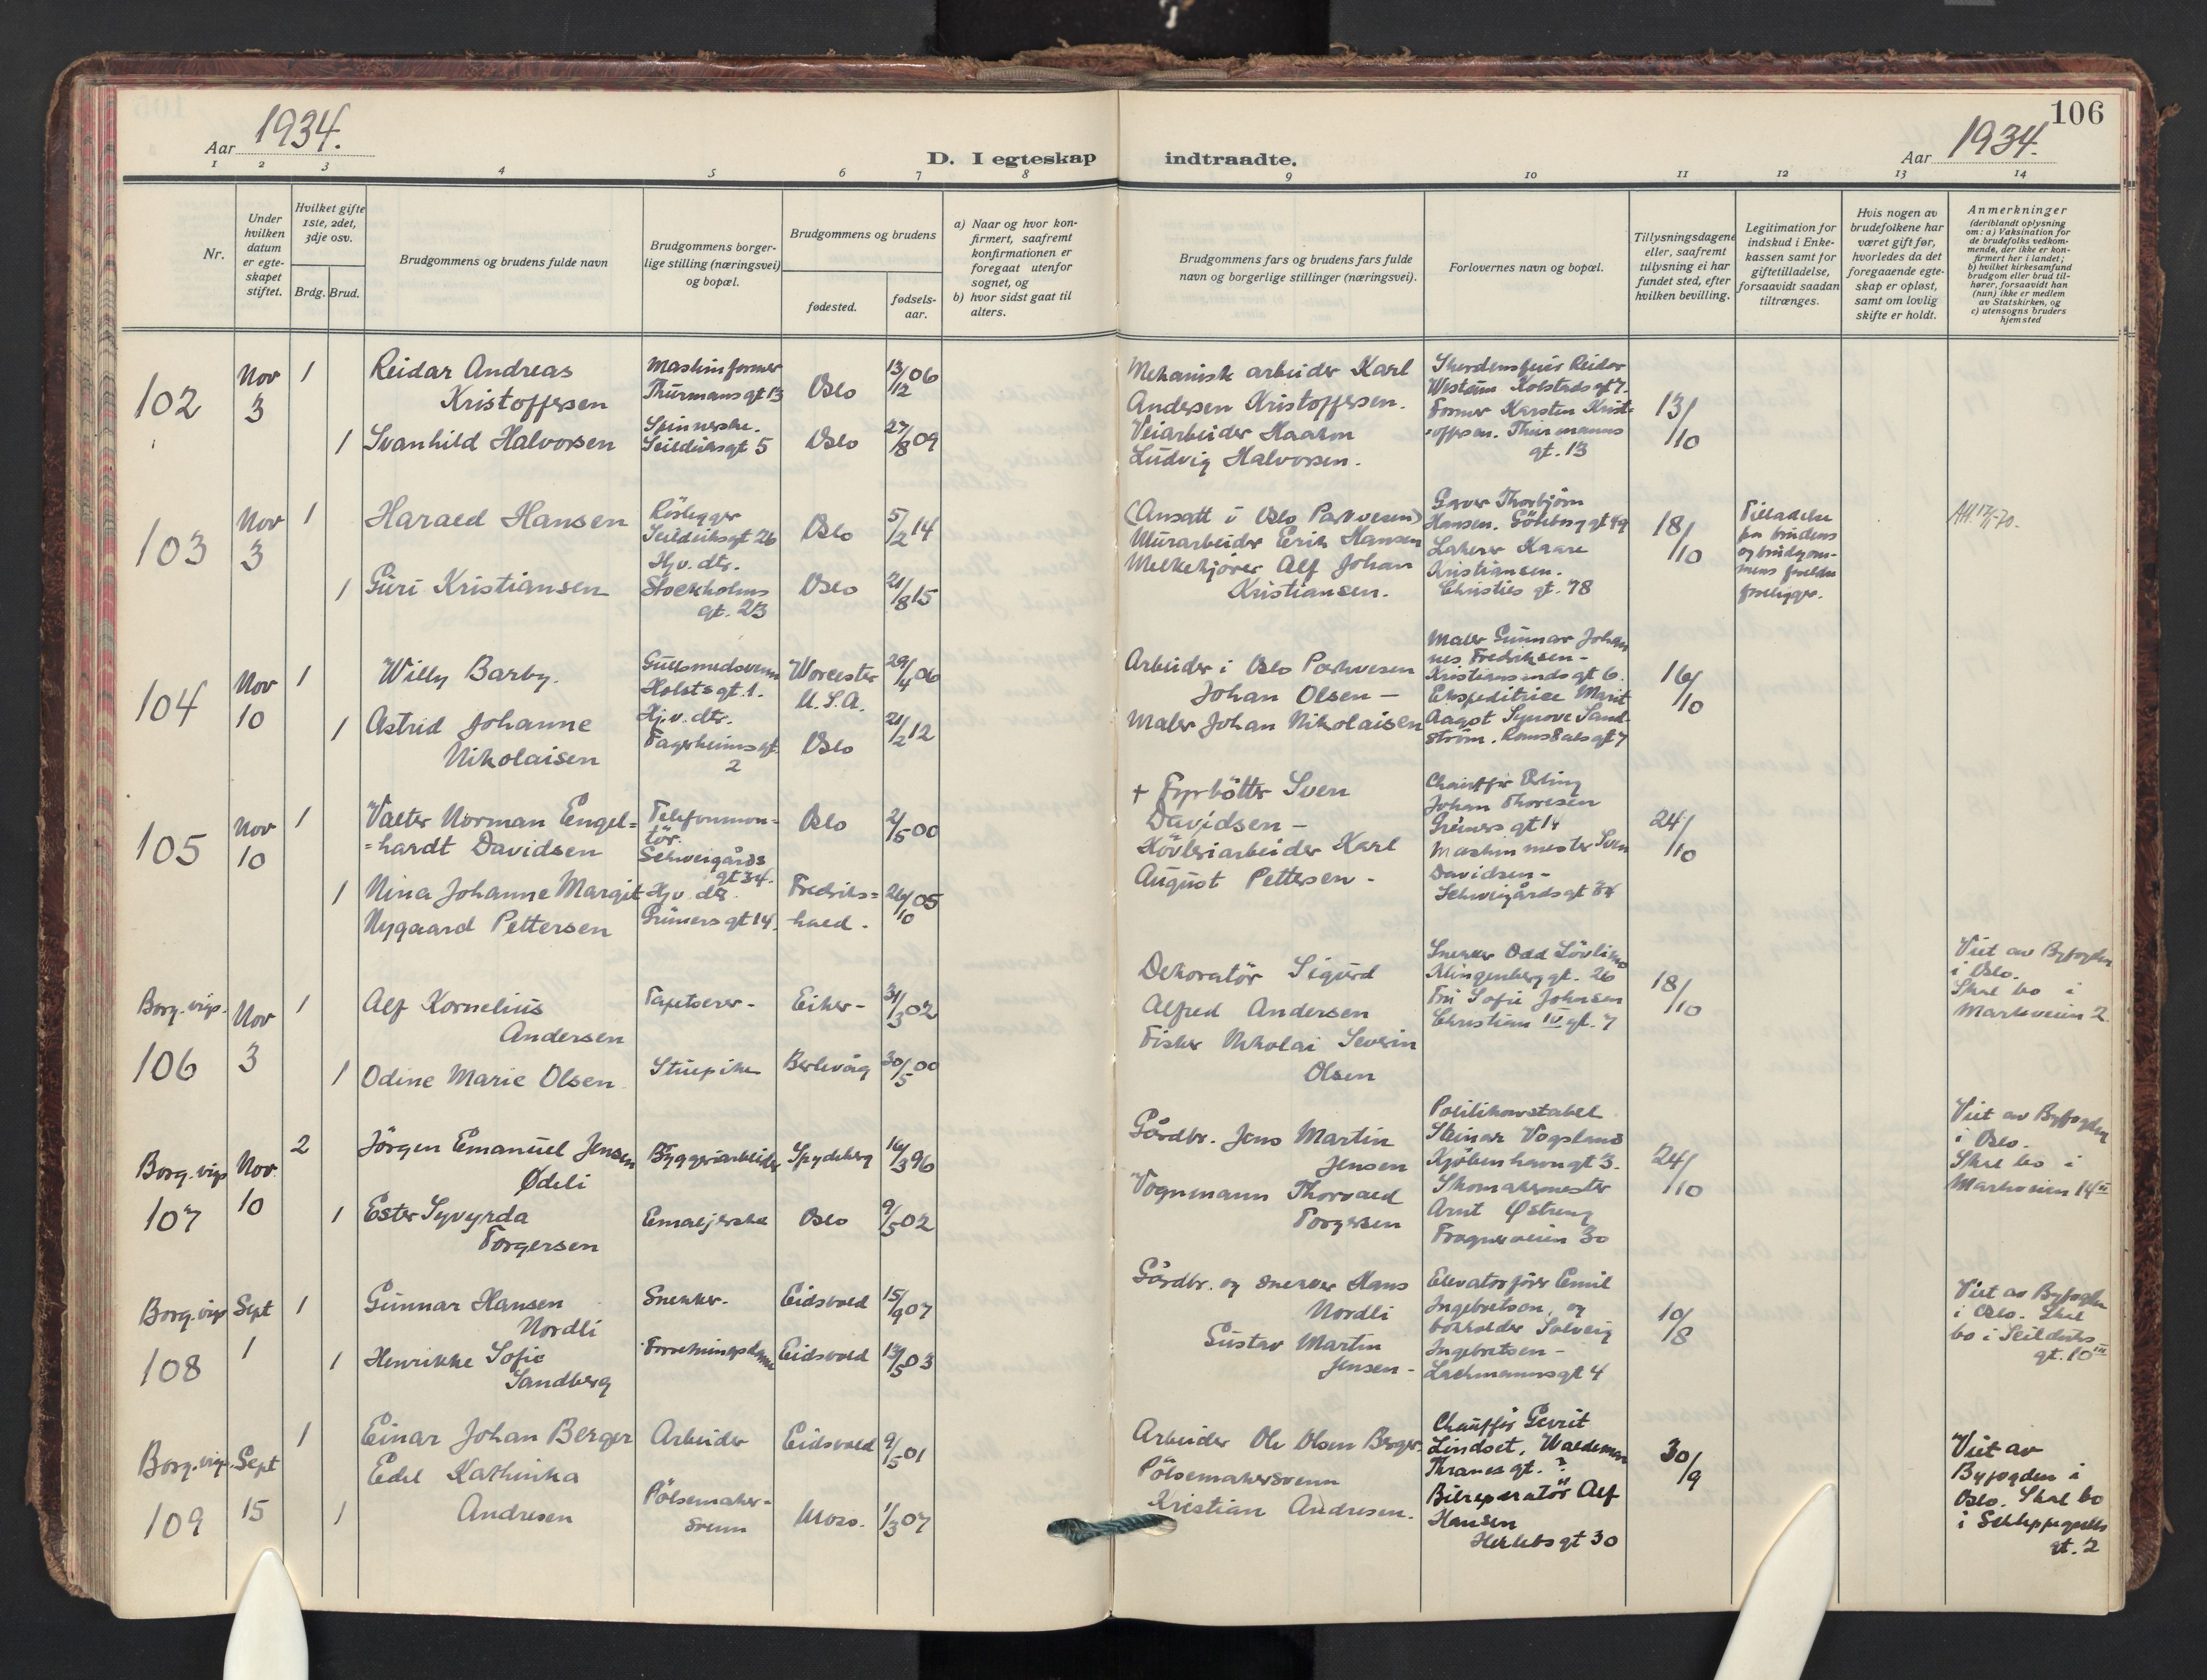 106
Aar 1934.
D. I egteskap indtraadte.
Aar 1934.
1 2 3 4 5 6 7 8 9 10 11 12 13 14
Nr.
Under
hvilken
datum
er egte-
skapet
stiftet.
Hvilket gifte
1ste, 2det,
3dje osv.
Brdg. Brud.
Brudgommens og brudens fulde navn
Brudgommens borger-
lige stilling (næringsvei)
og bopæl.
Brudgommens og brudens
fødested.
fødsels-
aar.
a) Naar og hvor kon-
firmert, saafremt
konfirmationen er
foregaat utenfor
sognet, og
b) hvor sidst gaat til
alters.
Brudgommens fars og brudens fars fulde
navn og borgerlige stillinger (næringsvei).
Forlovernes navn og bopæl.
Tillysningsdagene
eller, saafremt
tillysning ei har
fundet sted, efter
hvilken bevilling.
Legitimation for
indskud i Enke-
kassen samt for
giftetilladelse,
forsaavidt saadan
tiltrænges.
Hvis nogen av
brudefolkene har
været gift før,
hvorledes da det
foregaaende egte-
skap er opløst,
samt om lovlig
skifte er holdt.
Anmerkninger
(deriblandt oplysning
om: a) Vaksination for
de brudefolks vedkom-
mende, der ikke er kon-
firmert her i landet;
b) hvilket kirkesamfund
brudgom eller brud til-
hører, forsaavidt han
(hun) ikke er medlem
av Statskirken, og
c) utensogns bruders
hjemsted
102
Nov
3
1
Reidar Andreas
Kristoffersen
Maskinformer
Thurmansgt 13
Oslo
13/12 06
1
Svanhild Halvorsen
Spinnerske.
Seilduksgt 5
Oslo
27/8 09
Mekanisk arbeider Karl
Andersen Kristoffersen.
Veiarbeider Haakon
Ludvig Halvorsen.
Skordensfeier Reidar
Westum Kolstadsgt 7.
Former Karsten Krist-
offersen. Thurmanns
gt. 13
13/10
103
Nov
3
1
Harald Hansen
Rörlegger
Seilduksgt 26
Oslo
5/2 14
1
Guri Kristiansen
Hjv. dtr.
Stockholms
gt. 23
Oslo
21/8 15
(Ansatt i Oslo Parkvesen)
Murarbeider Erik Hansen
Melkekjører Alf Johan
Kristiansen.
Garver Thorbjörn
Hansen. Göteborggt 49
Lakerer Kaare
Kristiansen.
Christies gt. 78
18/10
Tilladelse
fra brudens
og brudgom-
mens foreldre
foreligger.
104
Nov
10
1
Willy Barby.
Gullsmedsvenn
Holstsgt. 1.
Worcester
U.S.A.
29/4 06
1
Astrid Johanne
Nikolaisen
Hj.v. dtr.
Fagerheimsgt.
2
Oslo
21/2 12
Arbeider i Oslo Parkvesen
Johan Olsen —
Maler Johan Nikolaisen
Maler Gunnar Johan
nes Fredriksen -
Kristiansundsgt 6.
Ekspeditrice Marit
Aagot Synove Sand-
ström. Romsdalsgt 7
16/10
105
Nov
10
1
Valter Norman Engel=
=hardt Davidsen
Telefonmon-
tör.
Schweigårds
gt 34.
Oslo
2/5 00
1
Nina Johanne Margit
Nygaard Pettersen
Hjv. dtr.
Grünersgt 14.
Fredriks=
hald.
26/10 05
+ Fyrbötter Sven
Davidsen —
Hövleriarbeider Karl
August Pettersen -
Chauffør Erling
Johan Thoresen
Grünersgt 14
Maskinmester Sven
Davidsen -
Schweigårdsgt 34
24/10
Borg. vigs.
106
Nov
3
1
Alf Kornelius
Andersen
Tapetserer -
Eiker -
31/3 02
1
Odine Marie Olsen
Stuepike
Berlevåg
30/5 00
Dekoratör Sigurd
Alfred Andersen
Fisker Nikolai Severin
Olsen
Snekker Odd Lövlimo
Klingenberggt. 26
Fru Sofie Johnsen
Christian IV gt. 7
18/10
Viet av Byfogden
i Oslo.
Skal bo i
Markveien 2.
Borg. vigs
107
Nov.
10
2
Jörgen Emanuel Jensen
Ødeli
Byggeriarbeider
Spydeberg
16/3 96
1
Ester Syvyrda
Torgersen
Emaljerske
Oslo
9/5 02
Gårdbr. Jens Martin
Jensen
Vognmann Thorvald
Torgersen
Politikonstabel
Steinar Vogsland
Kjöbenhavngt 3.
Skomakermester
Arnt Østreng
Frognerveien 30
24/10
Viet av Byfogden
i Oslo.
Skal bo i
Markveien 14 II
Borg. vigs
108
Sept
1
1
Gunnar Hansen
Nordli
Snekker.
Eidsvold
15/9 07
1
Henrikke Sofie
Sandberg
Forretningsdame
Eidsvold
13/5 03
Gårdbr. og snekker Hans
Nordli
Gustav Martin
Jensen -
Elevatorförer Emil
Ingebretsen, og
bokholder Solveig
Ingebretsen -
Lachmannsgt 4
10/8
Viet av Byfogden
i Oslo. Skal
bo i Seilduks-
gt. 10 III
Borg. vigs.
109
Sept
15
1
Einar Johan Berger
Arbeider
Eidsvold
9/5 01
1
Edel Kathinka
Andresen
Pölsemaker-
svenn
Moss.
1/3 07
Arbeider Ole Olsen Berger.
Pölsemakersvenn
Kristian Andresen.
Chauffør Gerrit
Lindset, Waldemar
Thranesgt. ?
Bilreparatör Alf
Hansen
Herlebsgt 30
30/9
Viet av
Byfogden i
Oslo. Skal bo
i Schleppegrells
gt. 2